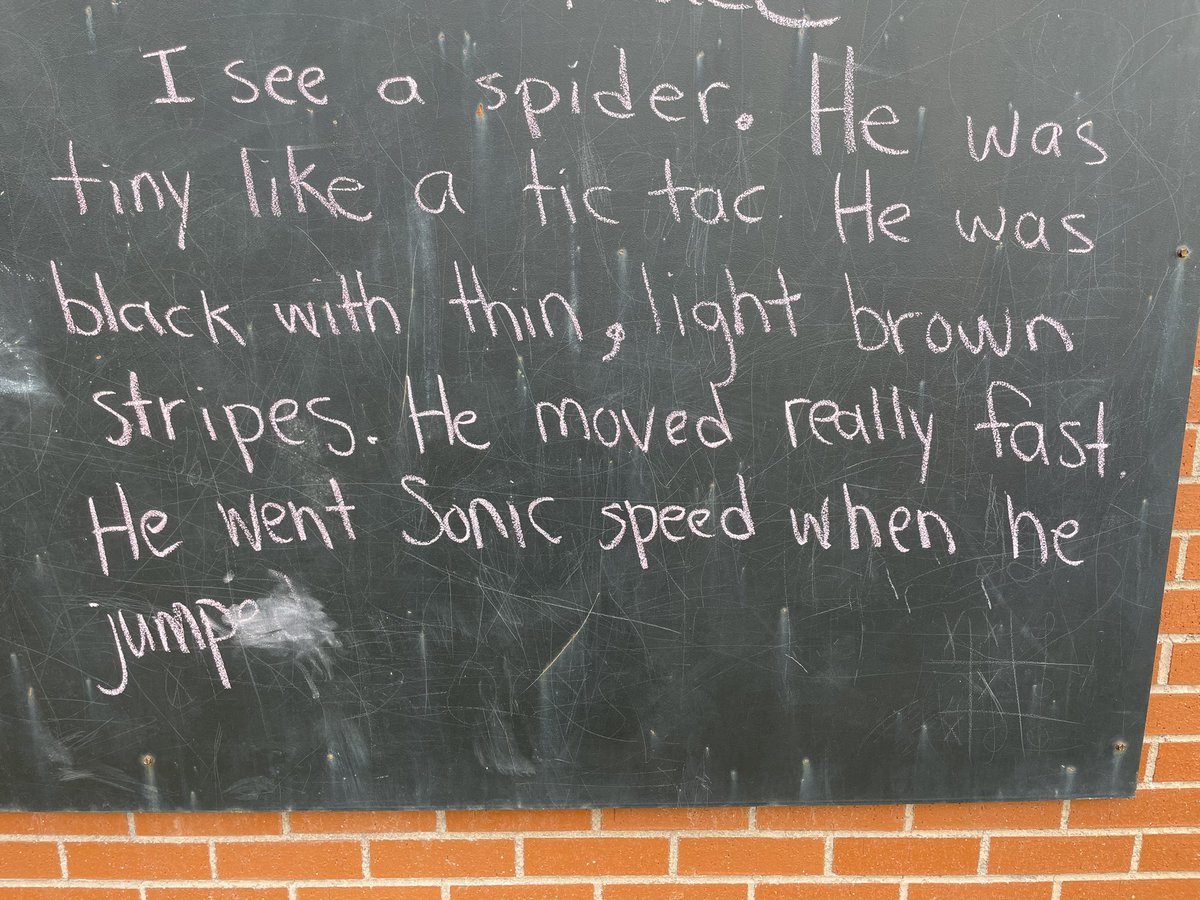 I see a spider. He was
tiny like a tic tac. He was
black with thin, light brown
stripes. He moved really fast.
He went Sonic speed when he